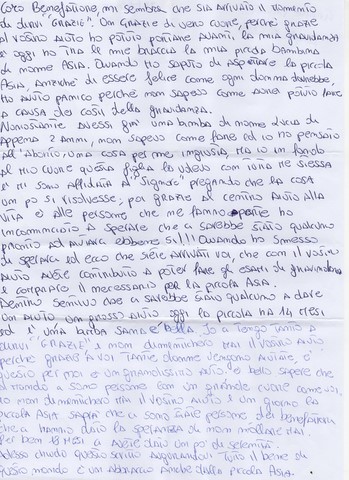 Caro Benefattore, mi sembra che sia arrivato il momento
di dirvi "GRAZIE". Un GRAZIE di vero cuore, perché grazie
al vostro aiuto ho potuto portare avanti la mia gravidanza
e oggi ho tra le mie braccia la mia piccola bambina
di nome Asia. Quando ho saputo di aspettare la piccola
Asia, anziché di essere felice come ogni donna dovrebbe,
ho avuto panico perché non sapevo come avrei potuto fare
a causa dei costi della gravidanza.
Nonostante avessi già una bambina di nome Lucia di
appena 2 anni, non sapevo come fare ed io ho pensato
all'aborto, una cosa per me ingiusta, ma io in fondo
al mio cuore questa figlia la volevo con tutta me stessa
e mi sono affidata al "Signore" pregando che la cosa
un po si risolvesse; poi grazie al centro aiuto alla
vita e alle persone che ne fanno parte ho
incominciato a sperare che ci sarebbe stato qualcuno
pronto ad aiutarci ebbene si!!! Quando ho smesso
di sperare ed ecco che siete arrivati voi, che con il vostro
aiuto avete contribuito a poter fare gli esami di gravidanza
e comprare il necessario per la piccola Asia.
Dentro sentivo che ci sarebbe stato qualcuno a dare
un aiuto un grosso aiuto oggi la piccola ha 14 mesi
ed è una bimba sana e bella. Io ci tengo tanto a
dirvi "GRAZIE" e non dimenticherò mai il vostro aiuto
perché grazie a voi tante donne vengono aiutate, e
questo per me è un grandissimo aiuto. è bello sapere che
al mondo ci sono persone con un grande cuore come voi.
Io non dimenticherò mai il vostro aiuto e un giorno la
piccola Asia saprà che ci sono state persone dei benefattori
che ci hanno dato la speranza di non mollare mai.
Per ben 18 mesi ci avete dato un po' di serenità.
Adesso chiudo questo scritto augurandovi tutto il bene di
questo mondo e un abbraccio anche dalla piccola Asia.